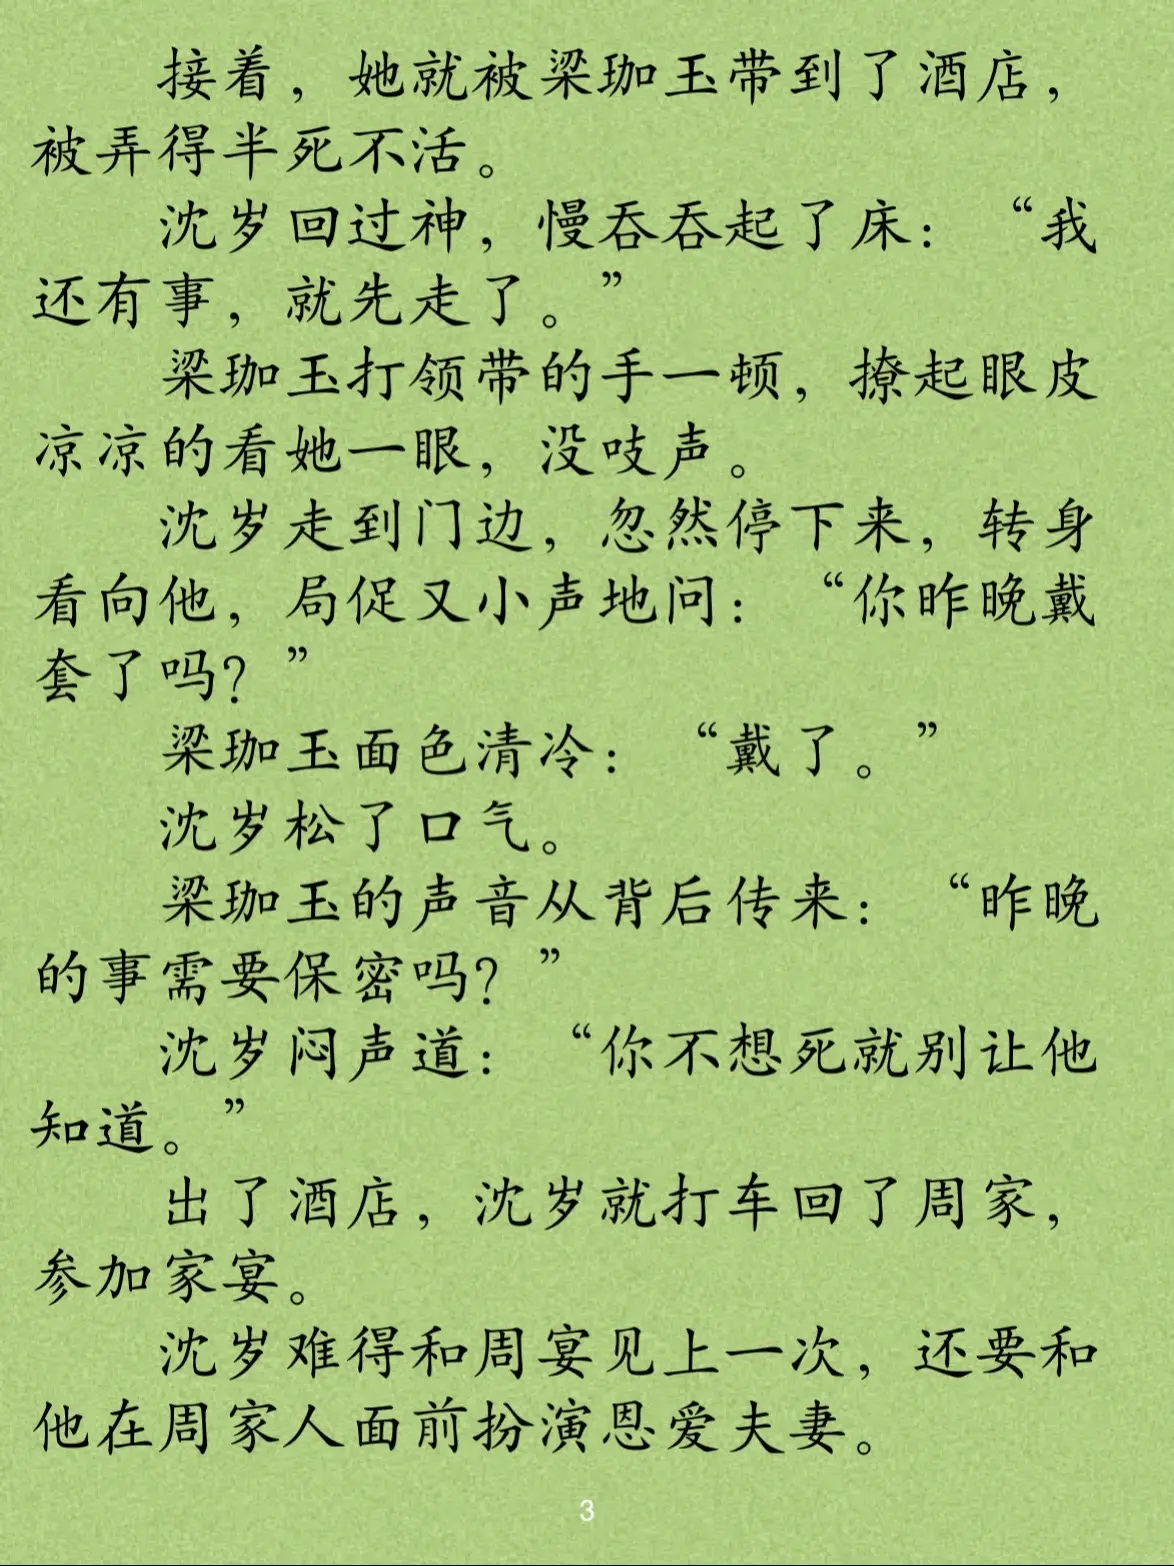 接着，她就被梁珈玉带到了酒店，
被弄得半死不活。
沈岁回过神，慢吞吞起了床：“我
还有事，就先走了。”
梁珈玉打领带的手一顿，撩起眼皮
凉凉的看她一眼，没吱声。
沈岁走到门边，忽然停下来，转身
看向他，局促又小声地问：“你昨晚戴
套了吗？”
梁珈玉面色清冷：“戴了。”
沈岁松了口气。
梁珈玉的声音从背后传来：“昨晚
的事需要保密吗？”
沈岁闷声道：“你不想死就别让他
知道。”
出了酒店，沈岁就打车回了周家，
参加家宴。
沈岁难得和周宴见上一次，还要和
他在周家人面前扮演恩爱夫妻。
3